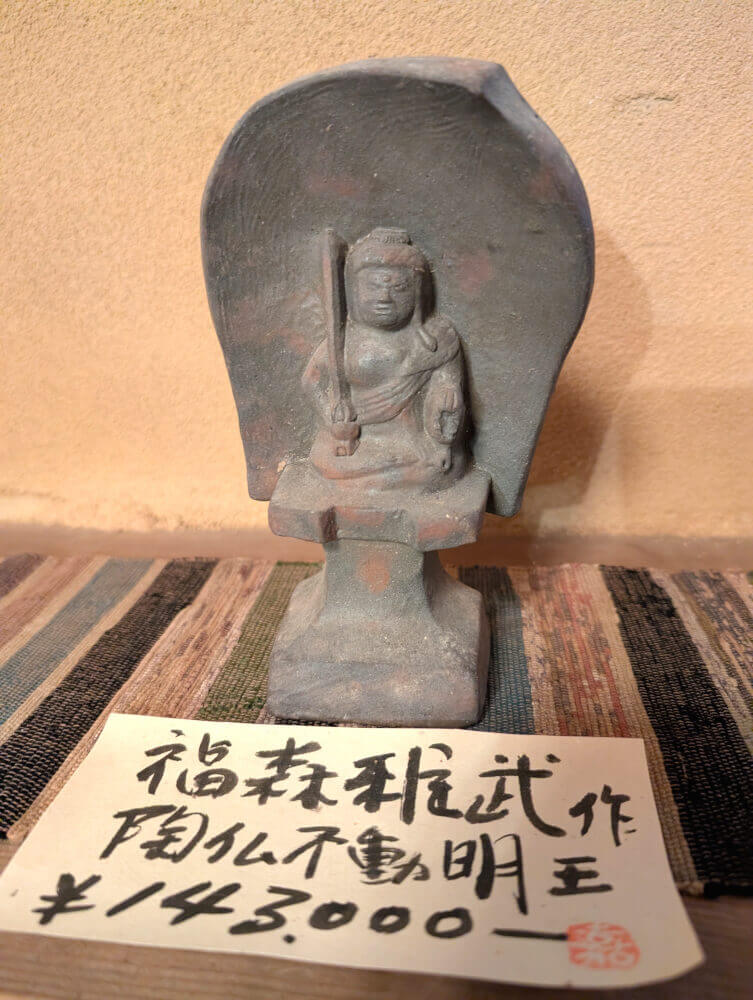 福森雅武作
陶仏不動明王
¥143.000—